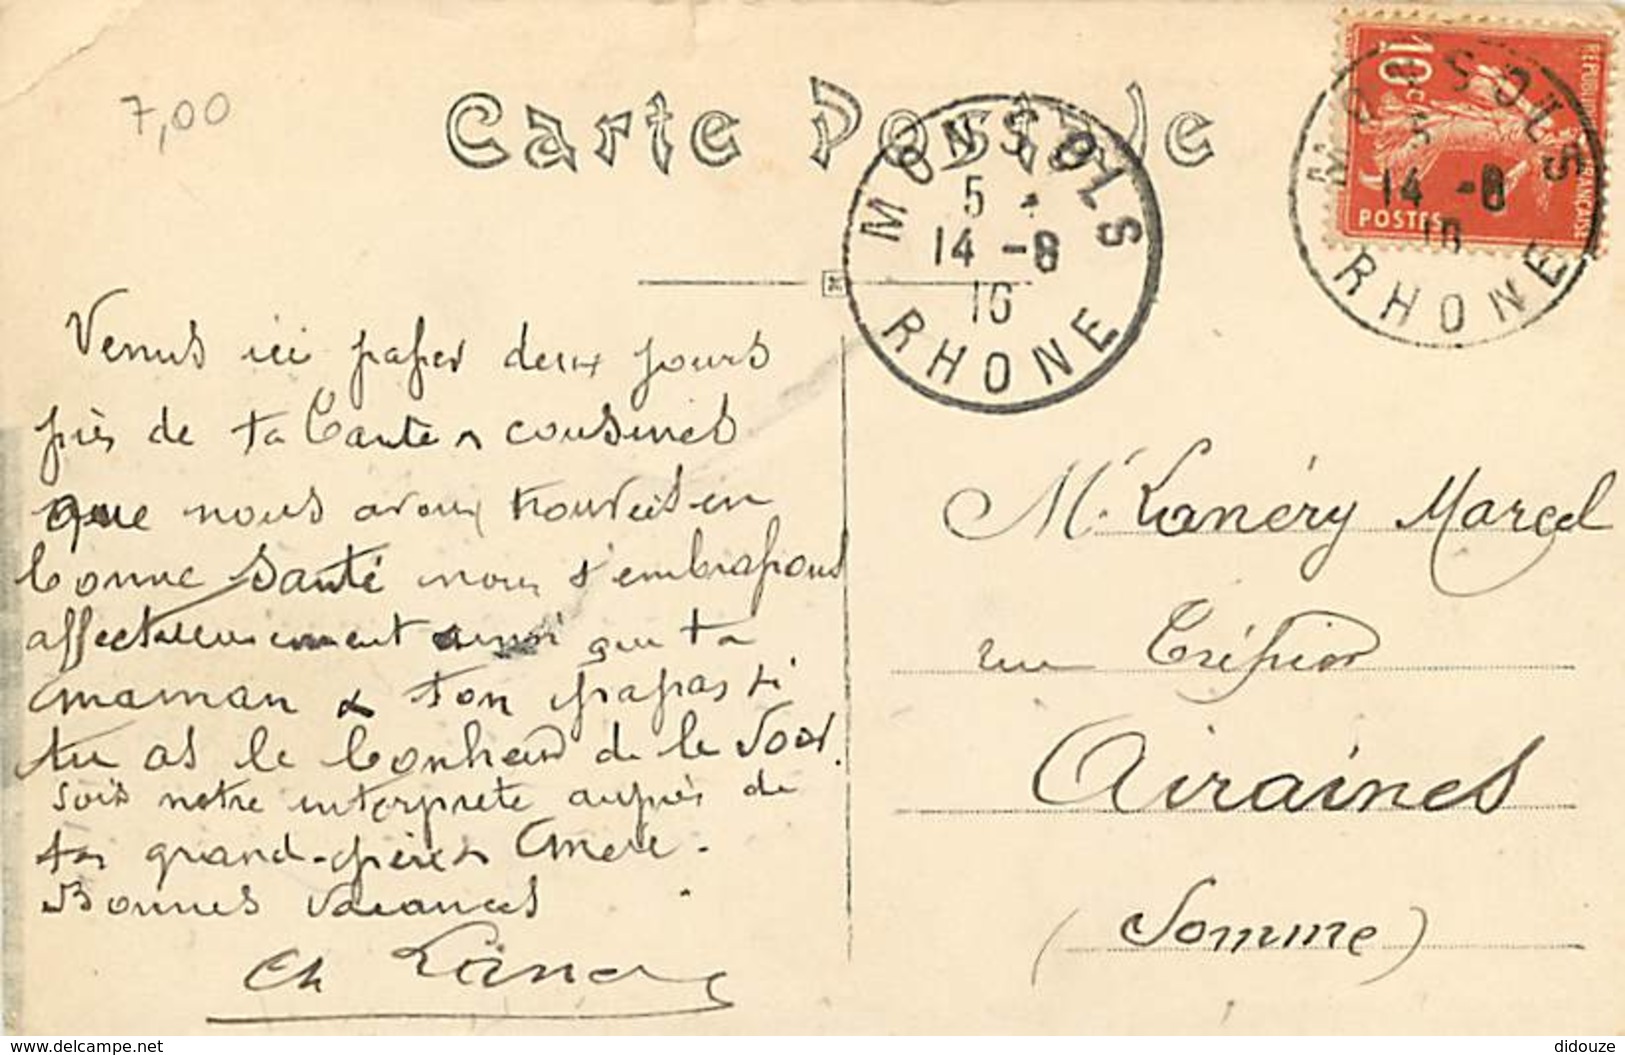 7,00
Carte Postale
MONSOLS
5
14 -8
16
RHONE
10c
REPUBLIQUE FRANÇAISE
POSTES
MONSOLS
5
14 -8
16
RHONE
Venus ici passer deux jours
près de ta tante & cousines
que nous avons trouvées en
bonne santé nous t'embrassons
affectueusement ainsi que ta
maman & ton papa si
tu as le bonheur de le voir.
sois notre interprète auprès de
tes grand-père & mère.
Bonnes vacances
Ch Lanery
Mr Lanéry Marcel
rue
Airaines
(Somme)
www.delcampe.net
didouze